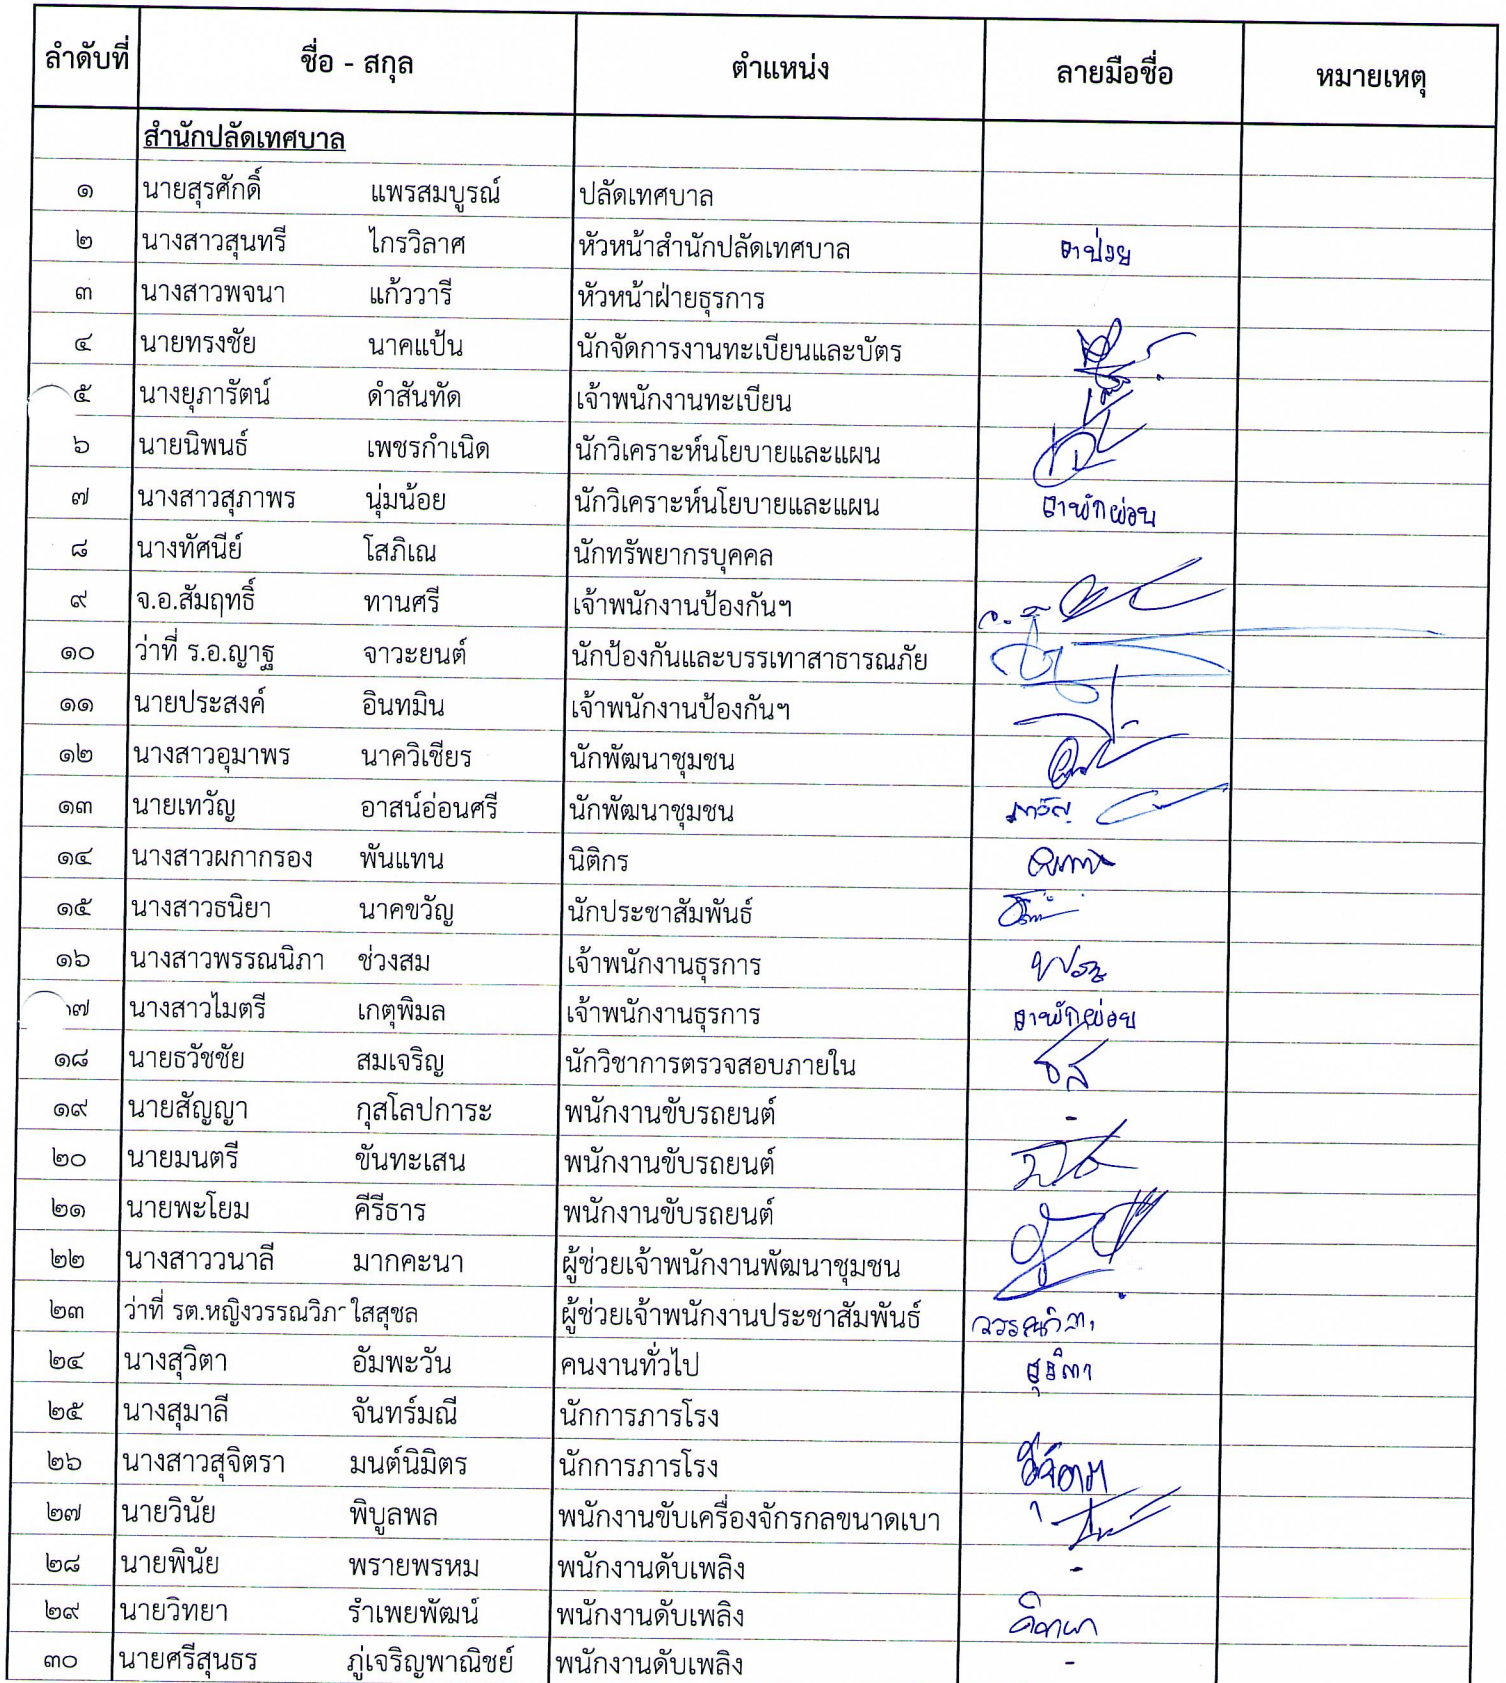 ลำดับที่ ชื่อ - สกุล ตำแหน่ง ลายมือชื่อ หมายเหตุ
สำนักปลัดเทศบาล
๑ นายสุรศักดิ์ แพรสมบูรณ์ ปลัดเทศบาล
๒ นางสาวสุนทรี ไกรวิลาศ หัวหน้าสำนักปลัดเทศบาล ลาป่วย
๓ นางสาวพจนา แก้ววารี หัวหน้าฝ่ายธุรการ
๔ นายทรงชัย นาคแป้น นักจัดการงานทะเบียนและบัตร
๕ นางยุภารัตน์ ดำสันทัด เจ้าพนักงานทะเบียน
๖ นายนิพนธ์ เพชรกำเนิด นักวิเคราะห์นโยบายและแผน
๗ นางสาวสุภาพร นุ่มน้อย นักวิเคราะห์นโยบายและแผน ลาพักผ่อน
๘ นางทัศนีย์ โสภิเณ นักทรัพยากรบุคคล
๙ จ.อ.สัมฤทธิ์ ทานศรี เจ้าพนักงานป้องกันฯ
๑๐ ว่าที่ ร.อ.ญาฐ จาวะยนต์ นักป้องกันและบรรเทาสาธารณภัย
๑๑ นายประสงค์ อินทมิน เจ้าพนักงานป้องกันฯ
๑๒ นางสาวอุมาพร นาควิเชียร นักพัฒนาชุมชน
๑๓ นายเทวัญ อาสน์อ่อนศรี นักพัฒนาชุมชน
๑๔ นางสาวผกากรอง พันแทน นิติกร
๑๕ นางสาวธนิยา นาคขวัญ นักประชาสัมพันธ์
๑๖ นางสาวพรรณนิภา ช่วงสม เจ้าพนักงานธุรการ
๑๗ นางสาวไมตรี เกตุพิมล เจ้าพนักงานธุรการ ลาพักผ่อน
๑๘ นายธวัชชัย สมเจริญ นักวิชาการตรวจสอบภายใน ธส
๑๙ นายสัญญา กุสโลปการะ พนักงานขับรถยนต์ -
๒๐ นายมนตรี ขันทะเสน พนักงานขับรถยนต์
๒๑ นายพะโยม คีรีธาร พนักงานขับรถยนต์
๒๒ นางสาววนาลี มากคะนา ผู้ช่วยเจ้าพนักงานพัฒนาชุมชน
๒๓ ว่าที่ รต.หญิงวรรณวิภา ใสสุชล ผู้ช่วยเจ้าพนักงานประชาสัมพันธ์ วรรณวิภา
๒๔ นางสุวิตา อัมพะวัน คนงานทั่วไป สุวิตา
๒๕ นางสุมาลี จันทร์มณี นักการภารโรง
๒๖ นางสาวสุจิตรา มนต์นิมิตร นักการภารโรง สุจิตรา
๒๗ นายวินัย พิบูลพล พนักงานขับเครื่องจักรกลขนาดเบา
๒๘ นายพินัย พรายพรหม พนักงานดับเพลิง -
๒๙ นายวิทยา รำเพยพัฒน์ พนักงานดับเพลิง วิทยา
๓๐ นายศรีสุนธร ภู่เจริญพาณิชย์ พนักงานดับเพลิง -